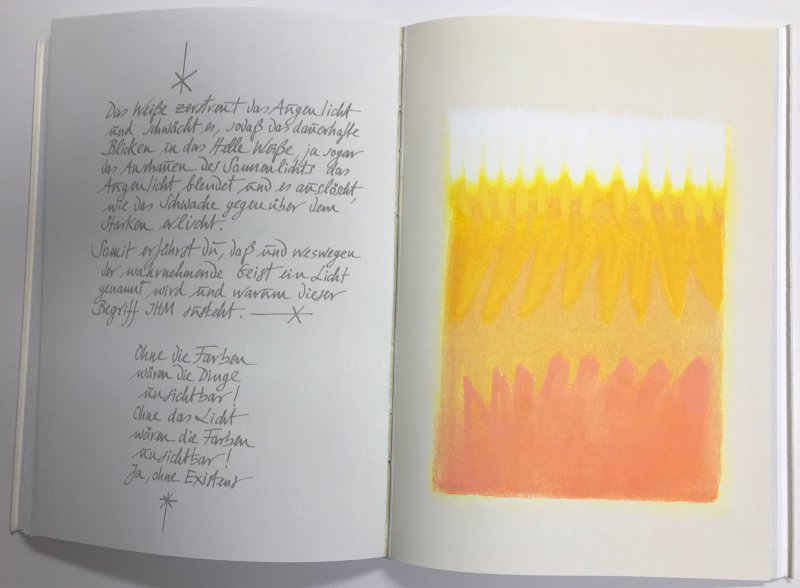 Das Weiße zerstreut das Augenlicht
und schwächt es, sodaß das dauerhafte
Blicken in das Helle Weiße, ja sogar
das Anschauen des Sonnenlichts das
Augenlicht blendet und es auslöscht,
wie das Schwache gegenüber dem
Starken erlischt.
Somit erfährst du, daß und weswegen
der wahrnehmende Geist ein Licht
genannt wird und warum dieser
Begriff IHM zusteht.
Ohne die Farben
wären die Dinge
unsichtbar!
Ohne das Licht
wären die Farben
unsichtbar!
Ja, ohne Existenz